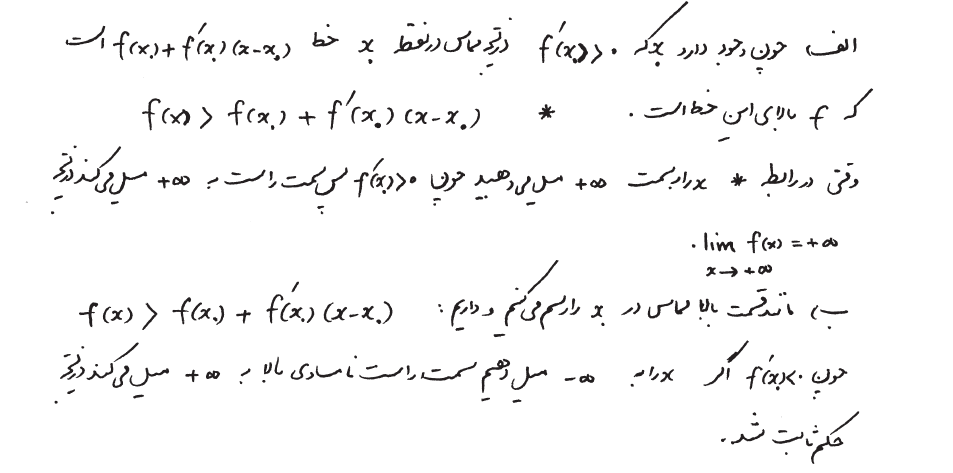 الف، چون وجود دارد x₀ که f'(x₀) > 0 در نتیجه مماس در نقطه x₀ خط f(x₀) + f'(x₀)(x-x₀) است
که f بالای این خط است. * f(x) > f(x₀) + f'(x₀)(x-x₀)
وقتی در رابطه * x را به سمت +∞ میل می‌دهید چون f'(x₀)>0 پس سمت راست به +∞ میل می‌کند در نتیجه
. lim f(x) = +∞
x → +∞
ب، مانند قسمت بالا مماس در x₀ را رسم می‌کنیم و داریم: f(x) > f(x₀) + f'(x₀)(x-x₀)
چون f'(x₀)<0 اگر x را به -∞ میل دهیم سمت راست نامساوی بالا به +∞ میل می‌کند در نتیجه
حکم ثابت شد.